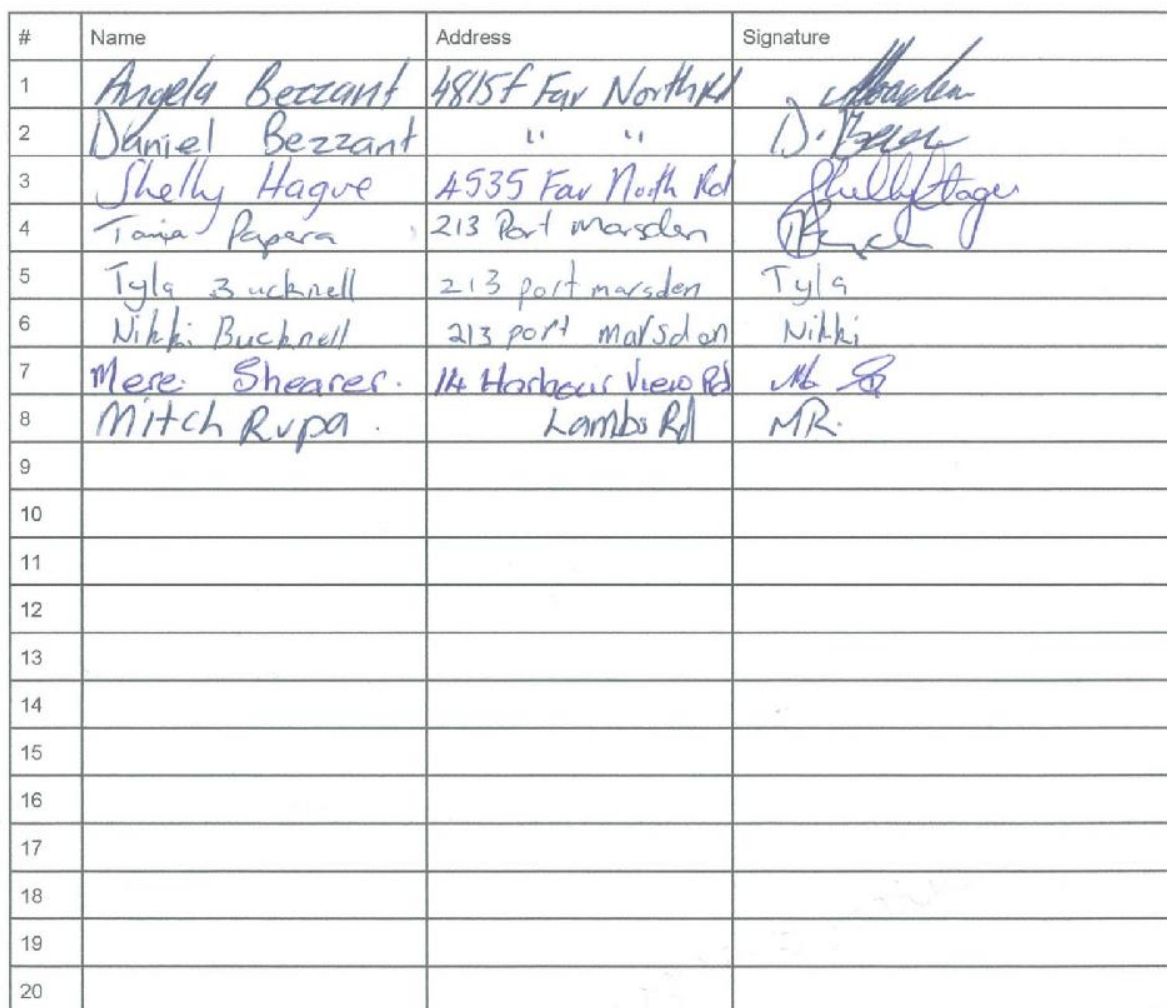 # Name Address Signature
1 Angela Bezzant 4815f Far North Rd
2 Daniel Bezzant " " D. Bezz
3 Shelly Hague 4535 Far North Rd Shelly Hague
4 Tania Papera 213 Port Marsden
5 Tyla Bucknell 213 port marsden Tyla
6 Nikki Bucknell 213 port marsden Nikki
7 Mere Shearer. 14 Harbour View Rd
8 Mitch Rupa. Lambs Rd MR.
9
10
11
12
13
14
15
16
17
18
19
20